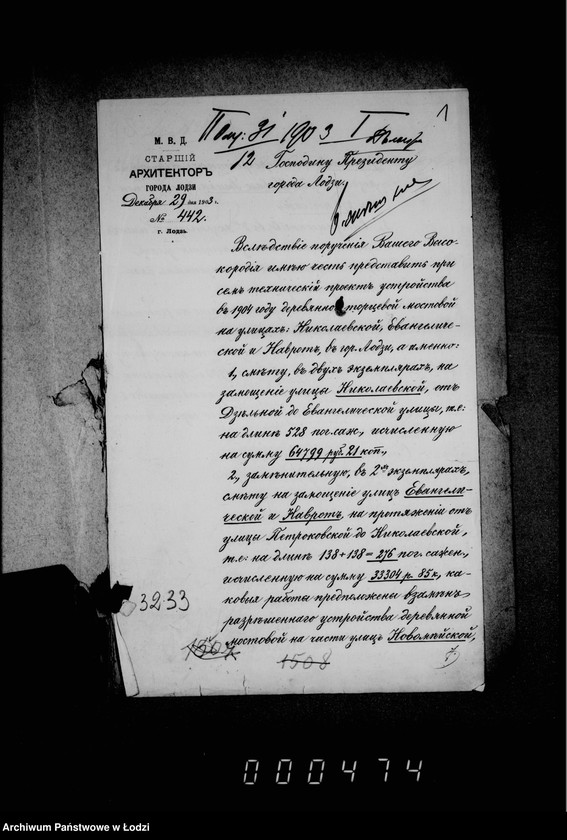 1
31/12 1903 I
М. В. Д.
СТАРШІЙ
АРХИТЕКТОРЪ
ГОРОДА ЛОДЗИ
Декабря 29 дня 1903 г.
№ 442.
г. Лодзь.
Господину Президенту
города Лодзи
Вслѣдствіе порученія Вашего Высо-
кородія имѣю честь представить при
семъ техническій проектъ устройства
въ 1904 году деревянной торцевой мостовой
на улицахъ: Николаевской, Евангеличе-
ской и Навротъ, въ гор. Лодзи, а именно:
1, смѣту, въ двухъ экземплярахъ, на
замощеніе улицы Николаевской, отъ
Дзѣльной до Евангелической улицы, т.е:
на длинѣ 528 пог. саж., исчисленную
на сумму 64799 руб. 21 коп.,
2, замѣнительную, въ 2хъ экземплярахъ,
смѣту на замощеніе улицъ Евангели-
ческой и Навротъ, на протяженіи отъ
улицы Петроковской до Николаевской,
т.е: на длинѣ 138+138=276 пог. сажен,
исчисленную на сумму 33304 р. 85 к, ка-
ковыя работы предположены взамѣнъ
разрѣшеннаго устройства деревянной
мостовой на части улицъ Новомѣйской,
3233
1507
1508
000474
Archiwum Państwowe w Łodzi